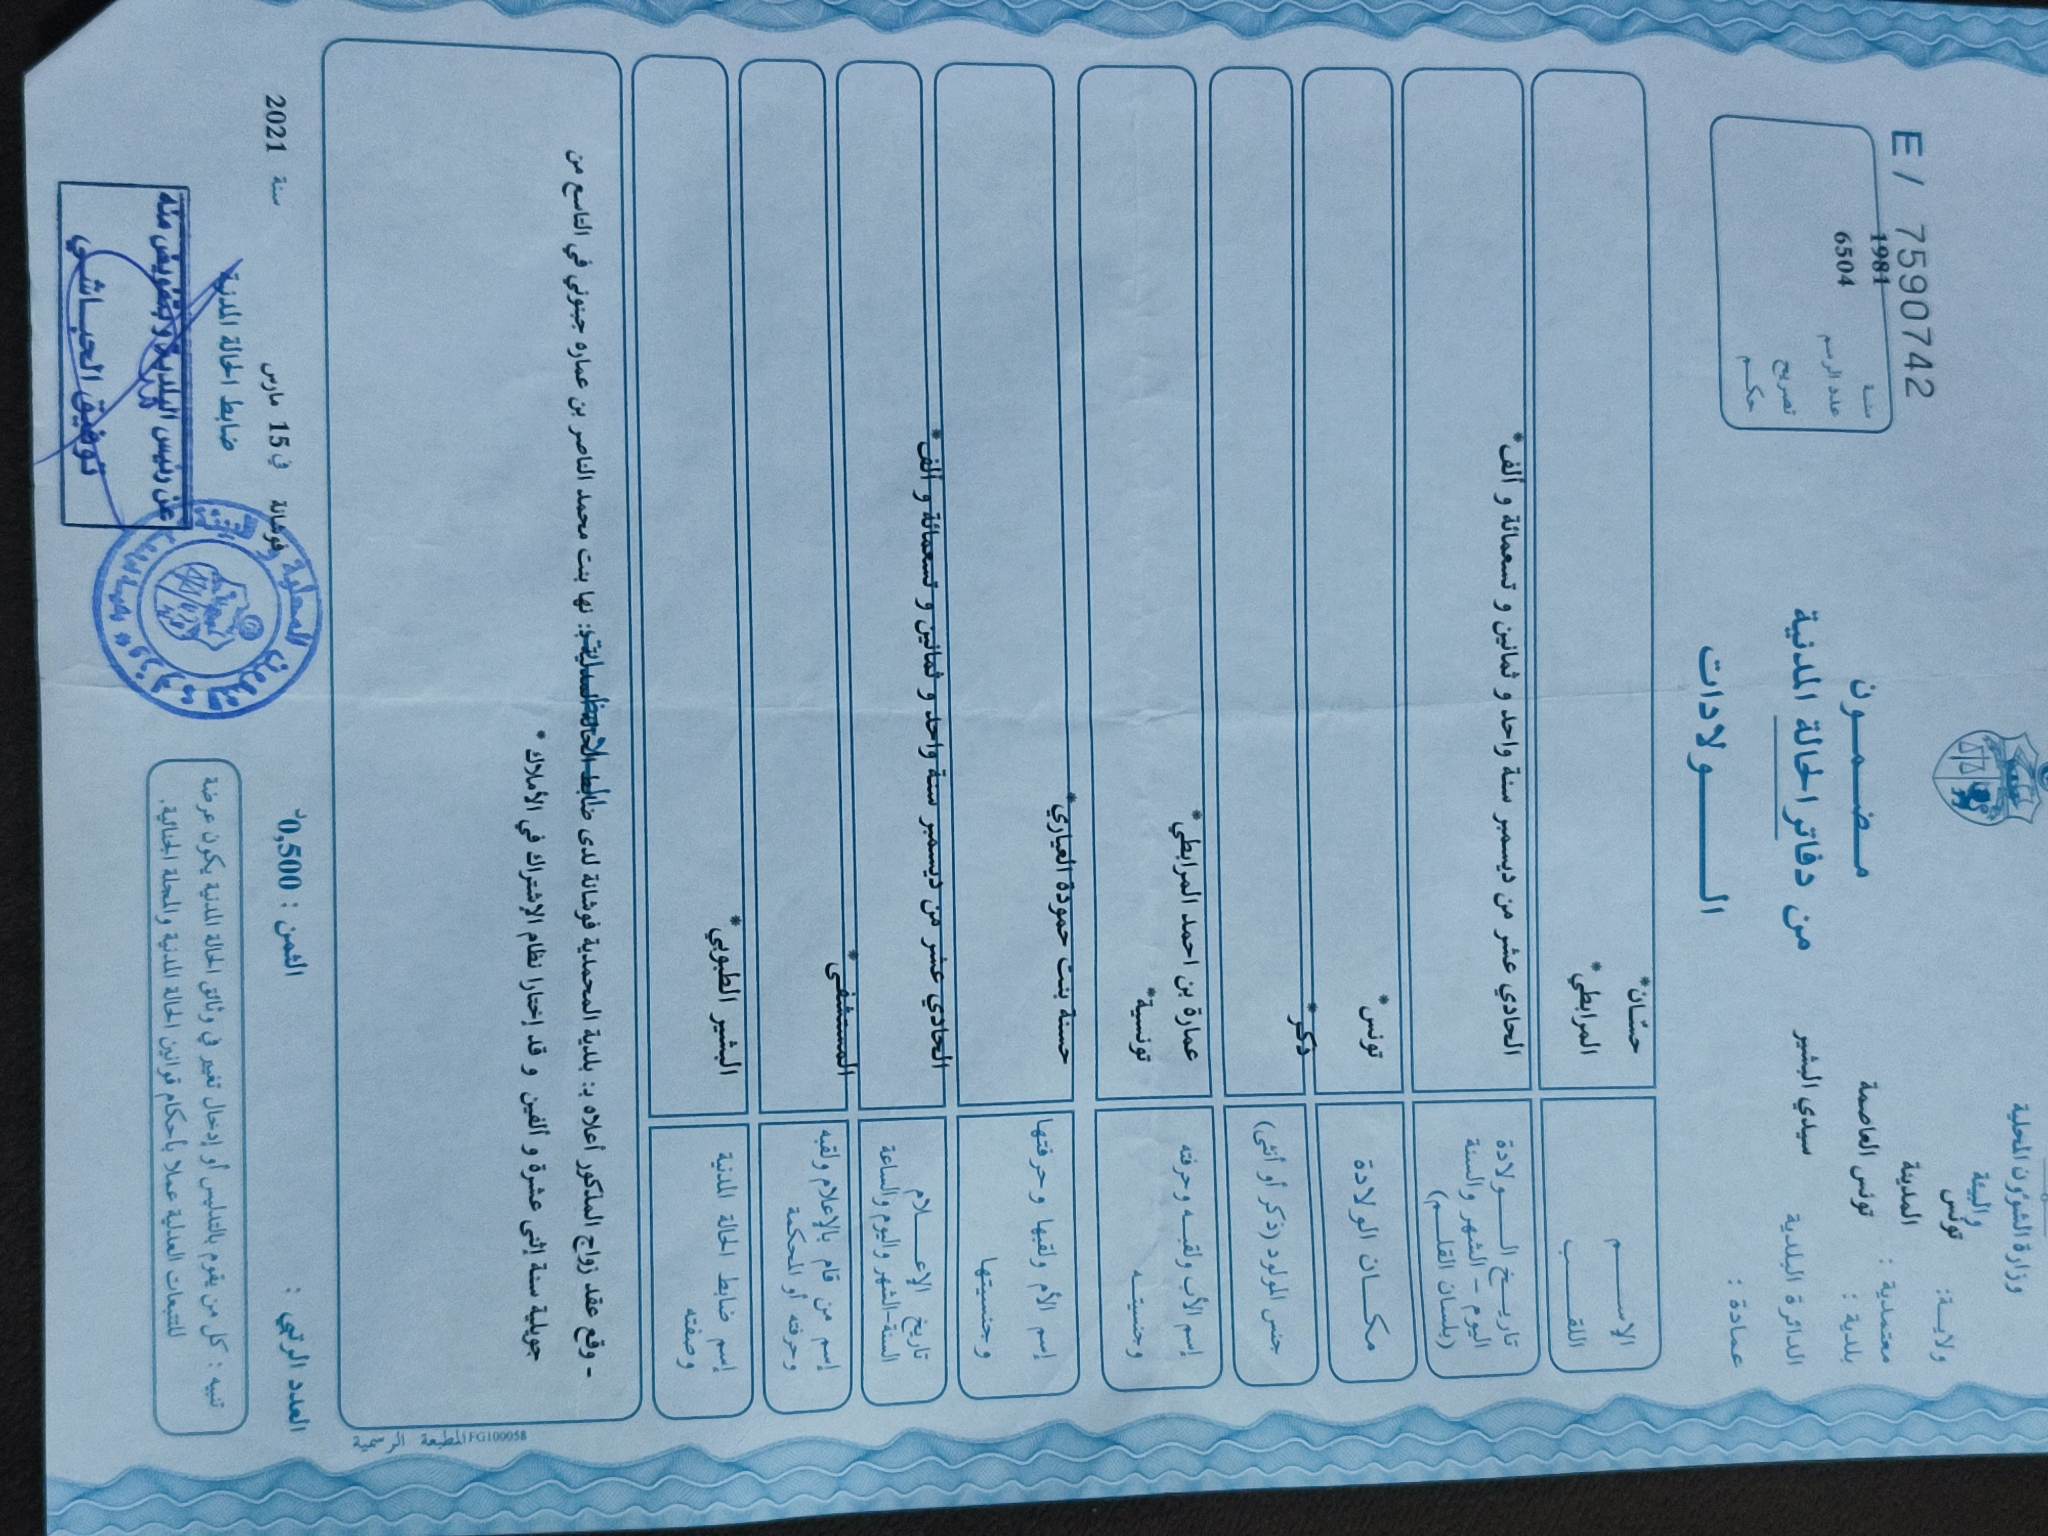 وزارة الشؤون المحلية
والبيئة
ولاية: تونس
معتمدية : المدينة
بلدية : تونس العاصمة
الدائرة البلدية سيدي البشير
عمادة :
E / 7590742
سنة 1981
عدد الرسم 6504
تصريح
حكم
مضمون
من دفاتر الحالة المدنية
الولادات
الإسم حسّان*
اللقب المرابطي*
تاريخ الولادة
اليوم - الشهر والسنة
(بلسان القلم)
الحادي عشر من ديسمبر سنة واحد و ثمانين و تسعمائة و ألف*
مكان الولادة تونس*
جنس المولود (ذكر أو أنثى) ذكر*
إسم الأب ولقبه وحرفته عمارة بن احمد المرابطي*
وجنسيته تونسية*
إسم الأم ولقبها وحرفتها حسنة بنت حمودة العياري*
وجنسيتها
تاريخ الإعلام
السنة-الشهر واليوم والساعة
الحادي عشر من ديسمبر سنة واحد و ثمانين و تسعمائة و ألف*
إسم من قام بالإعلام ولقبه
وحرفته أو المحكمة
المستشفى*
إسم ضابط الحالة المدنية
وصفته
البشير الطبوبي*
- وقع عقد زواج المذكور أعلاه بـ: بلدية المحمدية فوشانة لدى ضابط بنت محمد الناصر بن عماره جبنوني في التاسع من
جويلية سنة إثنى عشرة و ألفين و قد إختارا نظام الإشتراك في الأملاك *
المطبعة الرسمية FG100058
العدد الرتبي : الثمن : 0,500د
فوشانة في 15 مارس سنة 2021
ضابط الحالة المدنية
عن رئيس البلدية وبتفويض منه
توفيق الحباشي
تنبيه : كل من يقوم بالتدليس أو إدخال تغيير في وثائق الحالة المدنية يكون عرضة
للتتبعات العدلية عملا بأحكام قوانين الحالة المدنية والمجلة الجنائية.